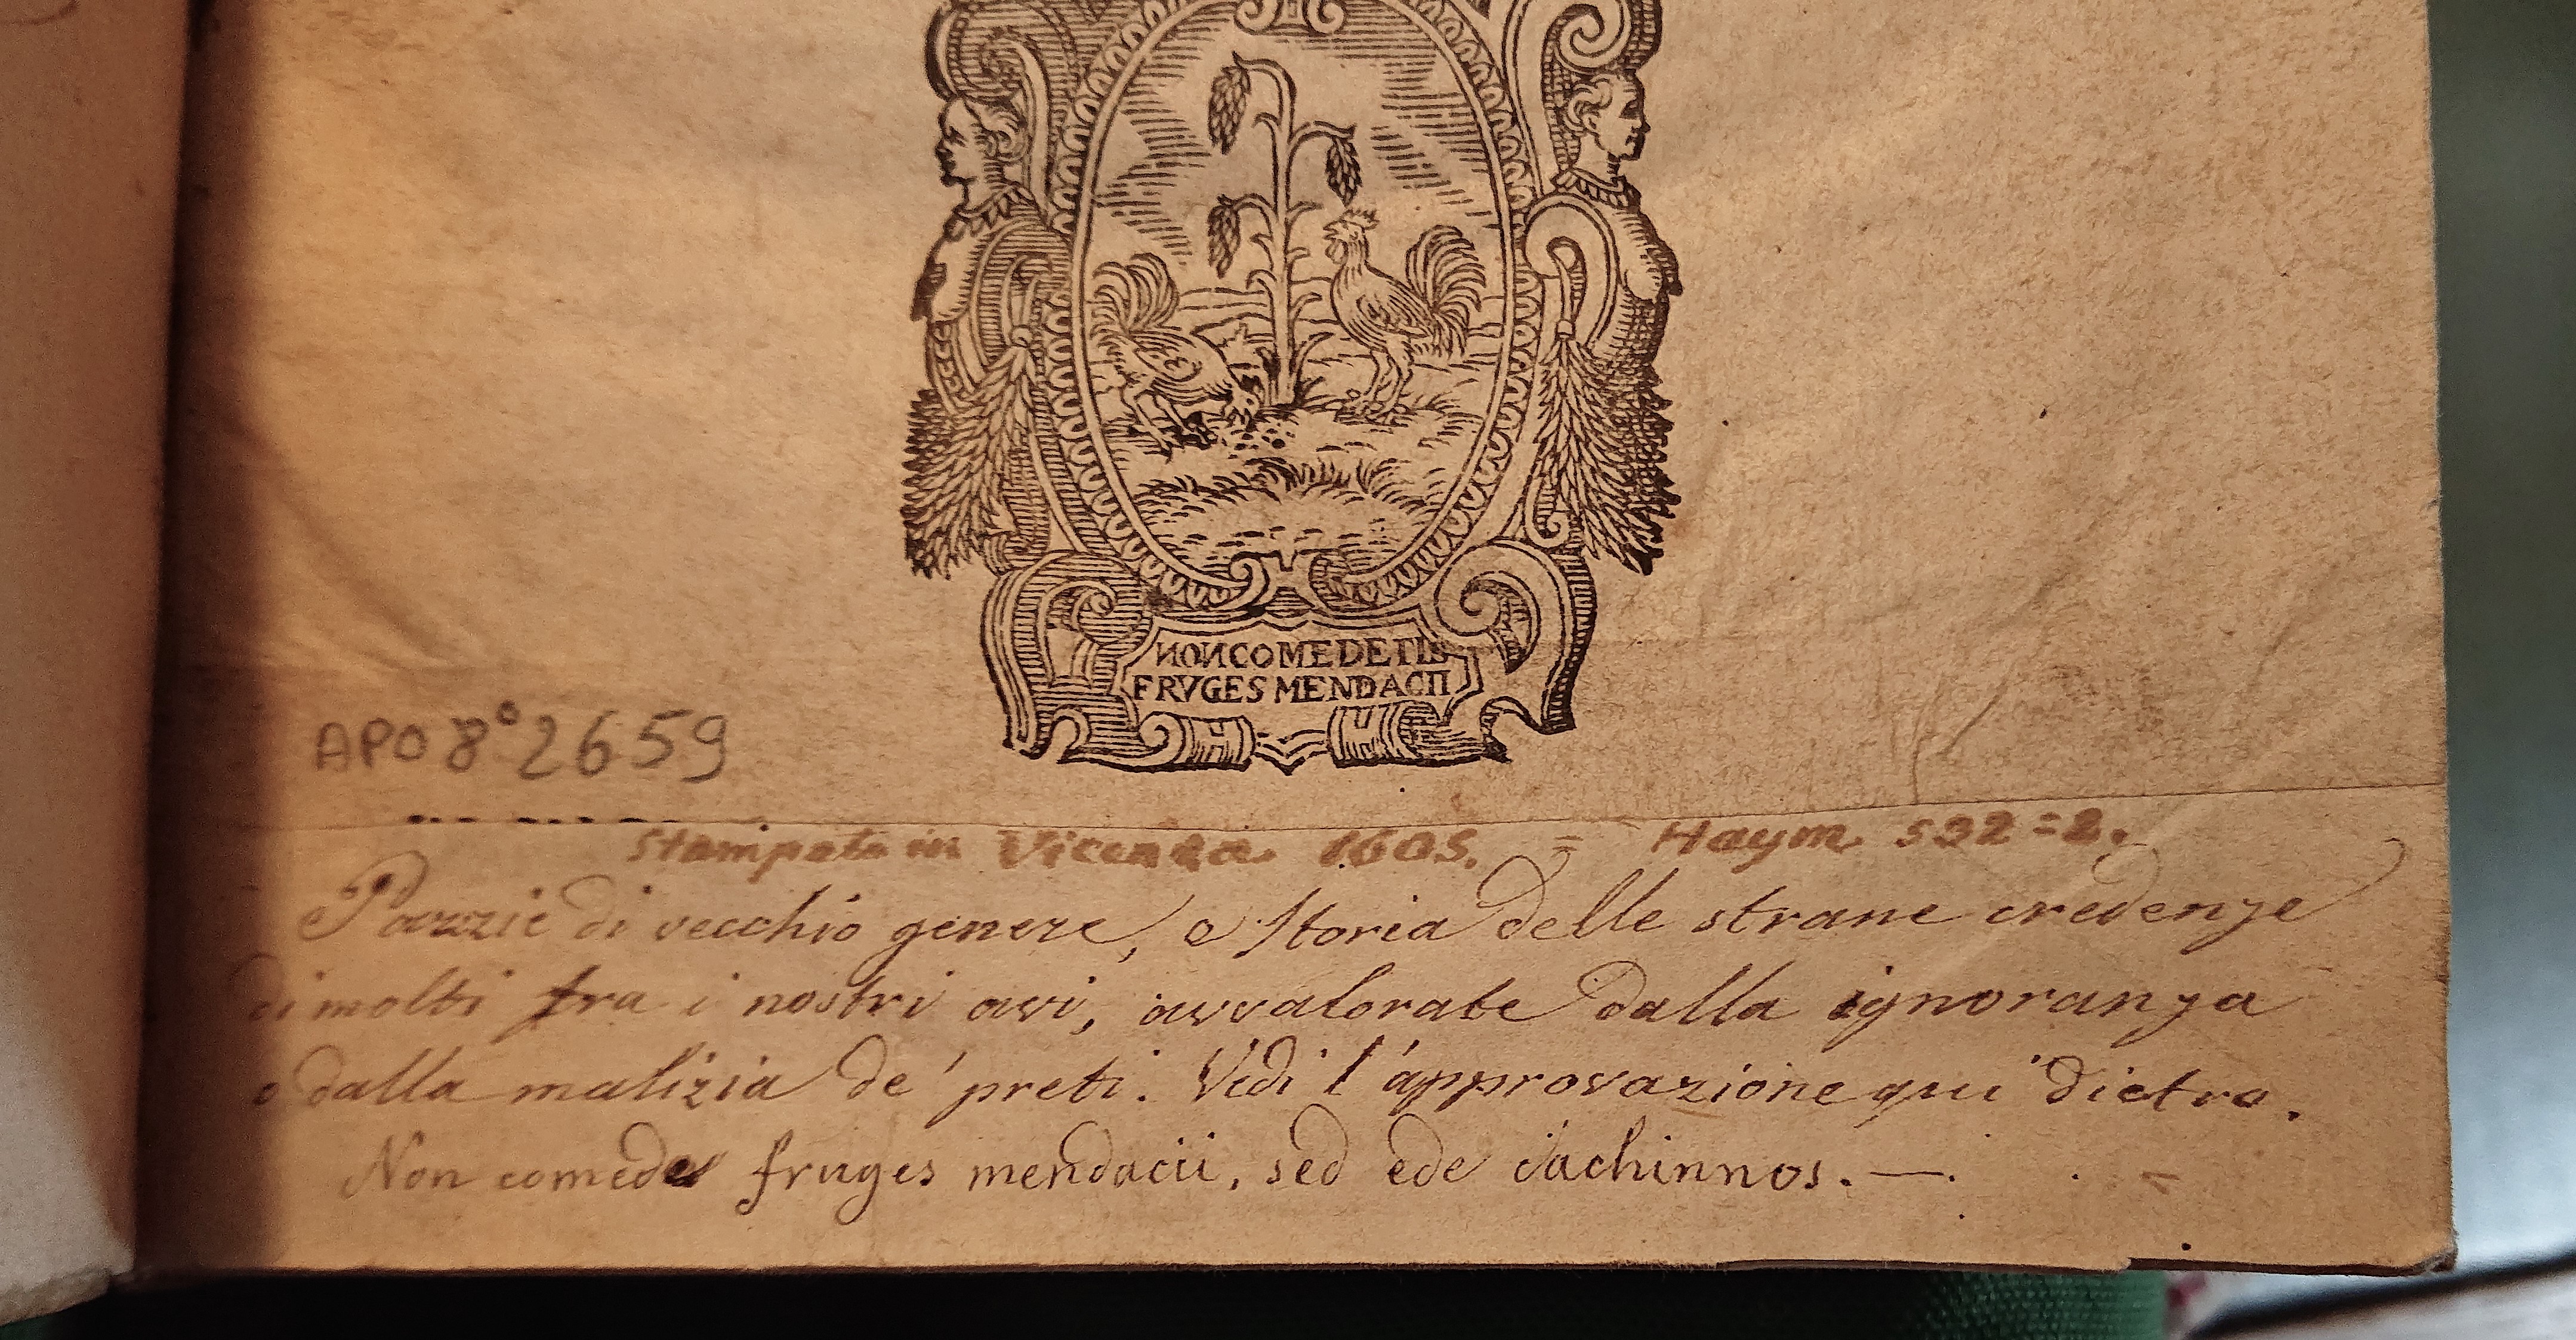 NON COMEDETIS
FRVGES MENDACII
APO 8° 2659
Stampato in Vicenza. 1605. = Haym. 532=2.
Pazzie di vecchio genere, e Storia delle strane credenze
di molti fra i nostri avi, avvalorate dalla ignoranza
o dalla malizia de' preti. Vedi l'approvazione qui dietro.
Non comedes fruges mendacii, sed ede cachinnos. —.